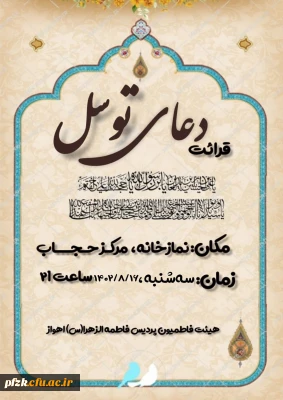 قرائت
دعای توسل
مکان: نمازخانه، مرکز حجاب
زمان: سه‌شنبه، ۱۴۰۲/۸/۱۷ ساعت ۲۱
هیئت فاطمیون پردیس فاطمه الزهرا(س) اهواز
pfzk.cfu.ac.ir